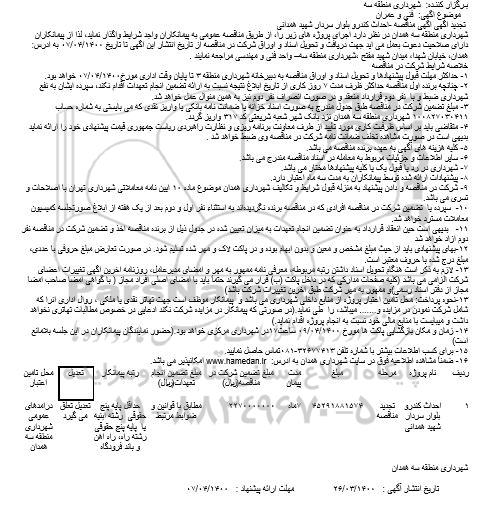 برگزار کننده: شهرداری منطقه سه
موضوع آگهی: فنی و عمران
تجدید آگهی مناقصه -احداث کندرو بلوار سردار شهید همدانی
شهرداری منطقه سه همدان در نظر دارد اجرای پروژه های زیر را، از طریق مناقصه عمومی به پیمانکاران واجد شرایط واگذار نماید، لذا از پیمانکاران
دارای صلاحیت دعوت بعمل می آید جهت دریافت و تحویل اسناد و اوراق شرکت در مناقصه از تاریخ انتشار این آگهی تا تاریخ ۰۷/۰۴/۱۴۰۰ به آدرس:
همدان، خیابان شهدا، میدان شهید مفتح ،شهرداری منطقه سه- واحد فنی و مهندسی مراجعه نمایند .
خلاصه شرایط شرکت در مناقصه
۱- حداکثر مهلت قبول پیشنهادها و تحویل اسناد و اوراق مناقصه به دبیرخانه شهرداری منطقه ۳ تا پایان وقت اداری مورخ۰۷/۰۴/۱۴۰۰ خواهد بود.
۲- چنانچه برنده اول مناقصه حداکثر ظرف مدت ۷ روز کاری از تاریخ ابلاغ نتیجه نسبت به ارائه تضمین انجام تعهدات اقدام نکند، سپرده ایشان به نفع
شهرداری ضبط و با نفر دوم قرارداد منعقد و در صورت انصراف نفر دوم نیز به همین منوال عمل خواهد شد.
۳- مبلغ تضمین شرکت در مناقصه طبق جدول مندرج به صورت اسناد خزانه یا ضمانت نامه بانکی یا واریز نقدی که می بایستی به شماره حساب
۱۰۰۸۲۷۰۳۰۴۱۱ شهرداری منطقه سه همدان نزد بانک شهر شعبه شریعتی کد ۳۱۷ واریز گردد.
۴- متقاضی باید بر اساس ظرفیت کاری مورد تایید از طرف معاونت برنامه ریزی و نظارت راهبردی ریاست جمهوری قیمت پیشنهادی خود را ارائه نماید
بدیهی است در صورت مشاهده تخلف ضمانت نامه شرکت در مناقصه وی ضبط خواهد شد .
۵- کلیه هزینه های آگهی به عهده برنده مناقصه می باشد.
۶- سایر اطلاعات و جزئیات مربوط به معامله در اسناد مناقصه مندرج می باشد.
۷- شهرداری در رد یا قبول یک یا کلیه پیشنهادها مختار می باشد.
۸- پیشنهادات ارائه شده توسط پیمانکاران به مدت سه ماه اعتبار دارد.
۹- شرکت در مناقصه و دادن پیشنهاد به منزله قبول شرایط و تکالیف شهرداری همدان موضوع ماده ۱۰ آیین نامه معاملاتی شهرداری تهران با اصلاحات و
تسری می باشد.
۱۰- سپرده یا تضمین شرکت در مناقصه افرادی که در مناقصه برنده نگردیده‌اند به استثناء نفر اول و دوم بعد از یک هفته از ابلاغ صورتجلسه کمیسیون
معاملات مسترد خواهد شد.
۱۱- بدیهی است حین انعقاد قرارداد به عنوان تضمین انجام تعهدات به میزان تعیین شده در جدول ذیل از برنده مناقصه اخذ و تضمین شرکت در مناقصه نفر
دوم آزاد خواهد شد
۱۲-بهای پیشنهادی باید از حیث مبلغ مشخص و معین و بدون ابهام بوده و در پاکت لاک و مهر شده تسلیم شود. در صورت تعارض مبلغ حروفی با عددی،
مبلغ درج شده با حروف معتبر است.
۱۳- لازم به ذکر است هنگام تحویل اسناد داشتن رتبه مربوطه، معرفی نامه ممهور به مهر و امضای مدیرعامل، روزنامه آخرین آگهی تغییرات اعضای
شرکت الزامی می باشد (کلیه صفحات مدارکی که در داخل پاکت (ب) قرار می گیرند حتما باید با امضای اصلی افراد مجاز ( یا گواهی امضا صاحب امضا
مجاز از دفتر اسناد رسمی)و ممهور به مهر شرکت طبق آخرین تغییرات شرکت باشد)
۱۳-نحوه پرداخت: محل تامین اعتبار پروژه از منابع داخلی شهرداری می باشد و پیمانکار موظف است جهت تهاتر نقدی یا ملکی ، روال اداری آنرا که
شامل شرکت نمودن در مزایده و ........ میباشد، را طی نماید.(در صورتی که پیمانکار در مزایده شرکت نکند ادعایی در خصوص مطالبات تهاتری نخواهد
داشت و میبایست با منابع مالی خود نسبت به انجام پروژه اقدام نماید.)
۱۴- زمان و مکان بازگشایی پاکت ها مورخ ۰۹/۰۴/۱۴۰۰ ساعت۱۷در شهرداری مرکزی خواهد بود (حضور نمایندگان پیمانکاران در این جلسه بلامانع
است)
۱۵- برای کسب اطلاعات بیشتر با شماره تلفن ۳۲۶۷۷۴۱۳-۰۸۱تماس حاصل نمایید.
۱۶- ضمناً مشاهده اطلاعیه فوق در سایت شهرداری همدان به آدرس: www.hamedan.ir امکانپذیر می باشد.
ردیف نام پروژه مرحله مبلغ مدت پیمان مبلغ تضمین شرکت در مناقصه(ریال) مبلغ تضمین انجام تعهدات(ریال) رتبه پیمانکار تعدیل محل تامین اعتبار
۱ احداث کندرو بلوار سردار شهید همدانی تجدید مناقصه ۴۵۲۹۱۸۸۱۵۷۴ ۷ماه ۲۲۷۰۰۰۰۰۰۰ مطابق با قوانین و ضوابط مرتبط حداقل پایه پنج حقوقی رشته ابنیه یا پایه پنج حقوقی رشته راه، راه آهن و باند فرودگاه تعدیل تعلق می گیرد درآمدهای عمومی شهرداری منطقه سه همدان
شهرداری منطقه سه همدان
تاریخ انتشار آگهی : ۲۶/۰۳/۱۴۰۰ مهلت ارائه پیشنهاد : ۰۷/۰۴/۱۴۰۰